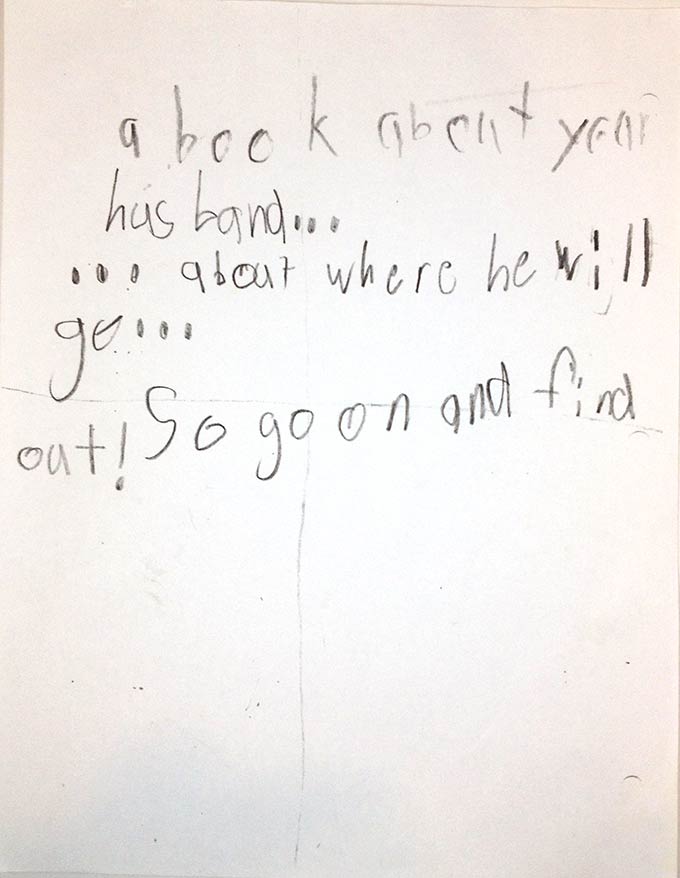 a book about year
husband...
... about where he will
go...
So go on and find
out!